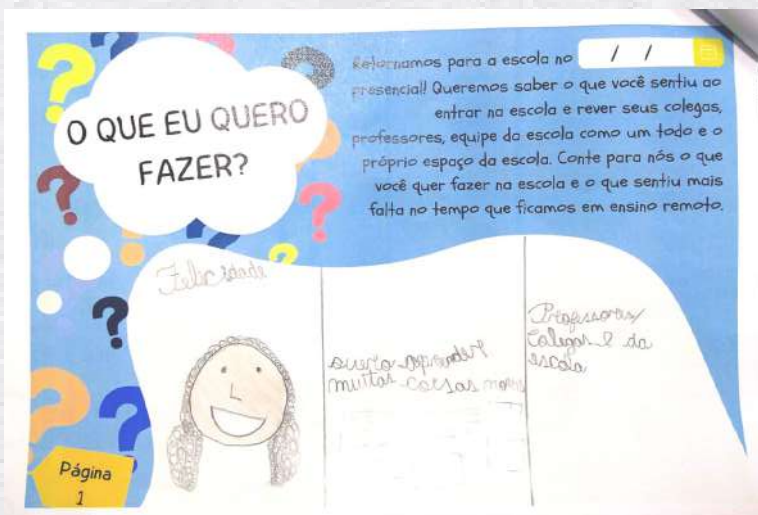 O QUE EU QUERO
FAZER?
Retornamos para a escola no / /
presencial! Queremos saber o que você sentiu ao
entrar na escola e rever seus colegas,
professores, equipe da escola como um todo e o
próprio espaço da escola. Conte para nós o que
você quer fazer na escola e o que sentiu mais
falta no tempo que ficamos em ensino remoto.
Felicidade
quero aprender
muitas coisas novas
Professores/
Colegas e da
escola
Página
1